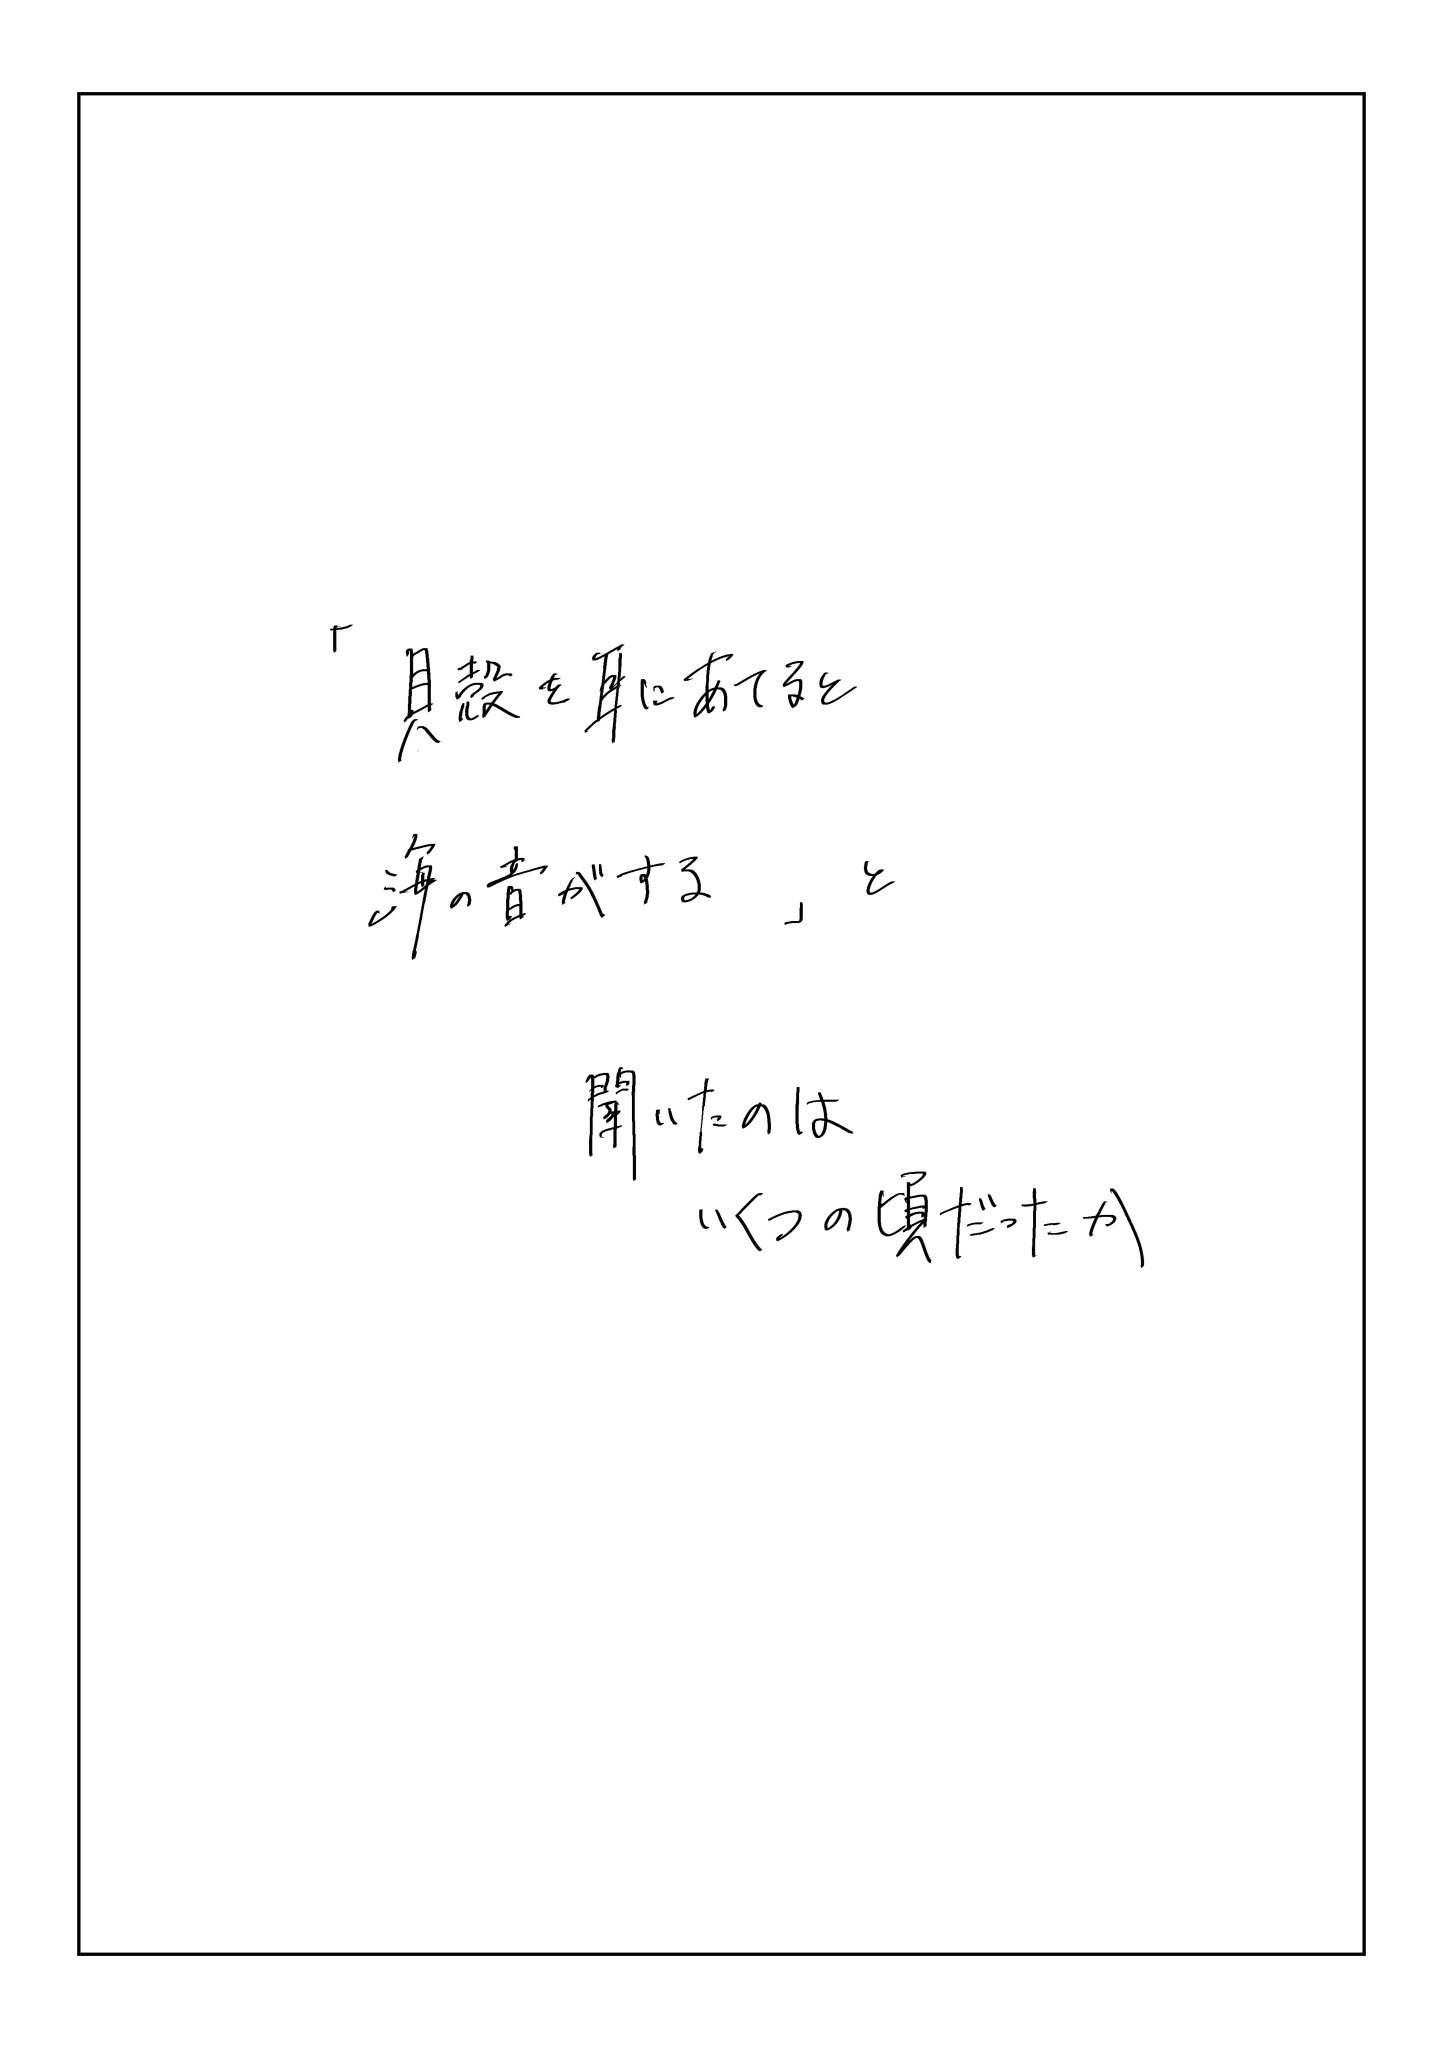 「貝殻を耳にあてると
海の音がする」と
聞いたのは
いくつの頃だったか